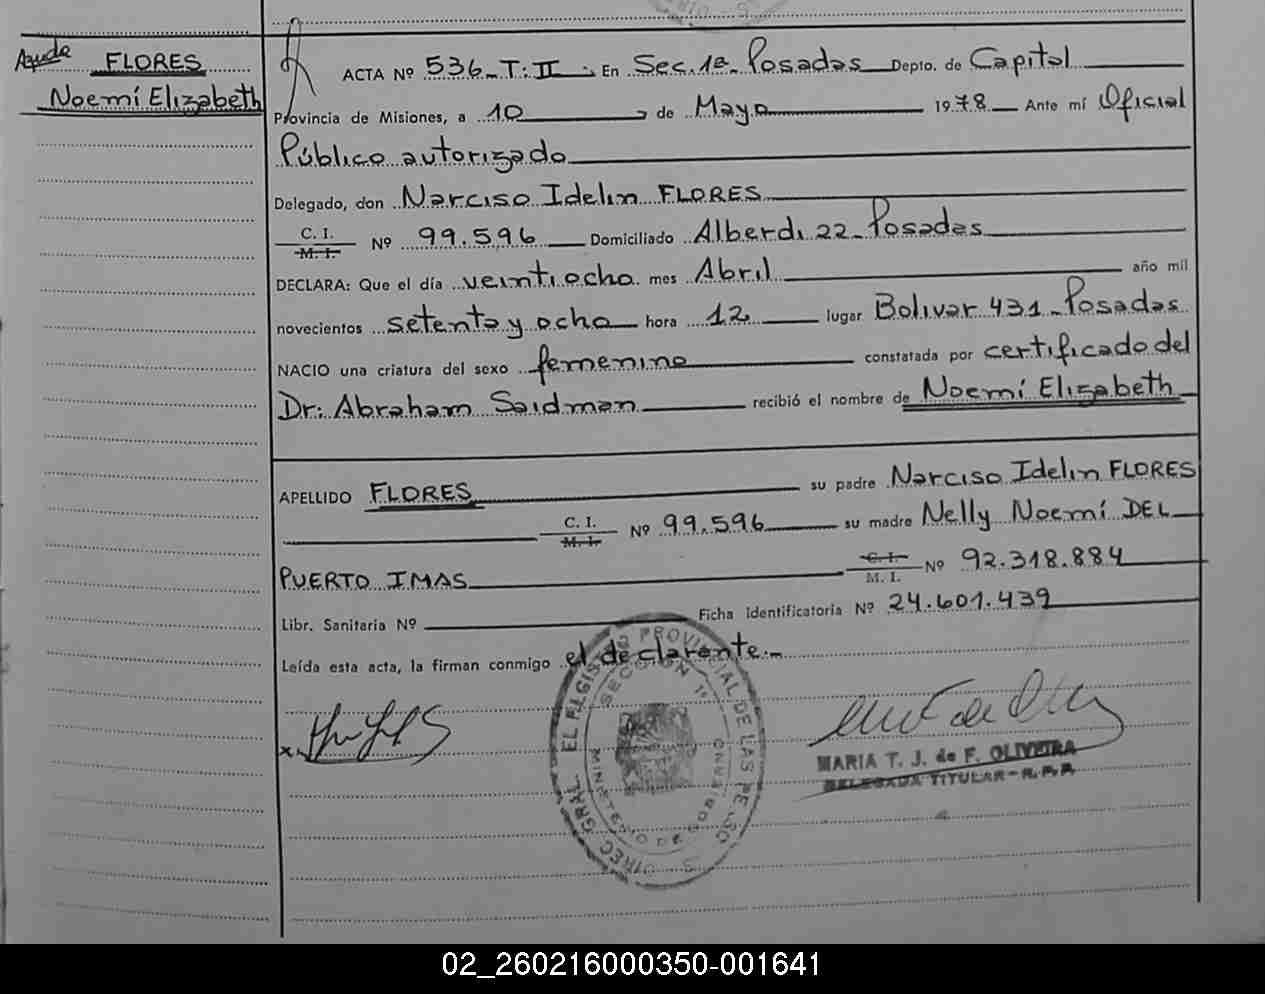 Ayuda FLORES
Noemí Elizabeth
ACTA Nº 536 - T: II En Sec. 1ª Posadas Depto. de Capital
Provincia de Misiones, a 10 de Mayo 1978 Ante mí Oficial
Público autorizado
Delegado, don Narciso Idelin FLORES
C. I. M. I. Nº 99.596 Domiciliado Alberdi 22 - Posadas
DECLARA: Que el día veintiocho mes Abril año mil
novecientos setenta y ocho hora 12 lugar Bolivar 431 - Posadas
NACIO una criatura del sexo femenino constatada por certificado del
Dr: Abraham Saidman recibió el nombre de Noemí Elizabeth
APELLIDO FLORES su padre Narciso Idelin FLORES
C. I. M. I. Nº 99.596 su madre Nelly Noemí DEL
PUERTO IMAS C. I. M. I. Nº 92.318.884
Libr. Sanitaria Nº Ficha identificatoria Nº 24.601.439
Leída esta acta, la firman conmigo el declarante.-
DIREC. GRAL. PROVINCIAL DE LAS PERSO S
SECCION 1ª
MINISTERIO DE GOBIERNO
MARIA T. J. de F. OLIVEIRA
DELEGADA TITULAR - R.P.P.
02_260216000350-001641